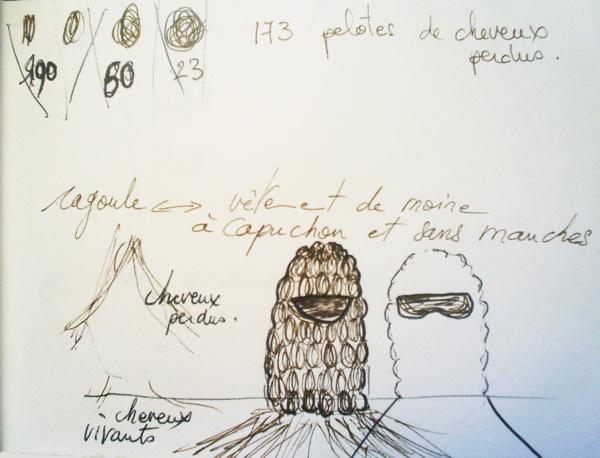 190 60 23
173 pelotes de cheveux
perdus.
cagoule ↔ vêtement de moine
à capuchon et sans manches
cheveux
perdus.
cheveux
vivants